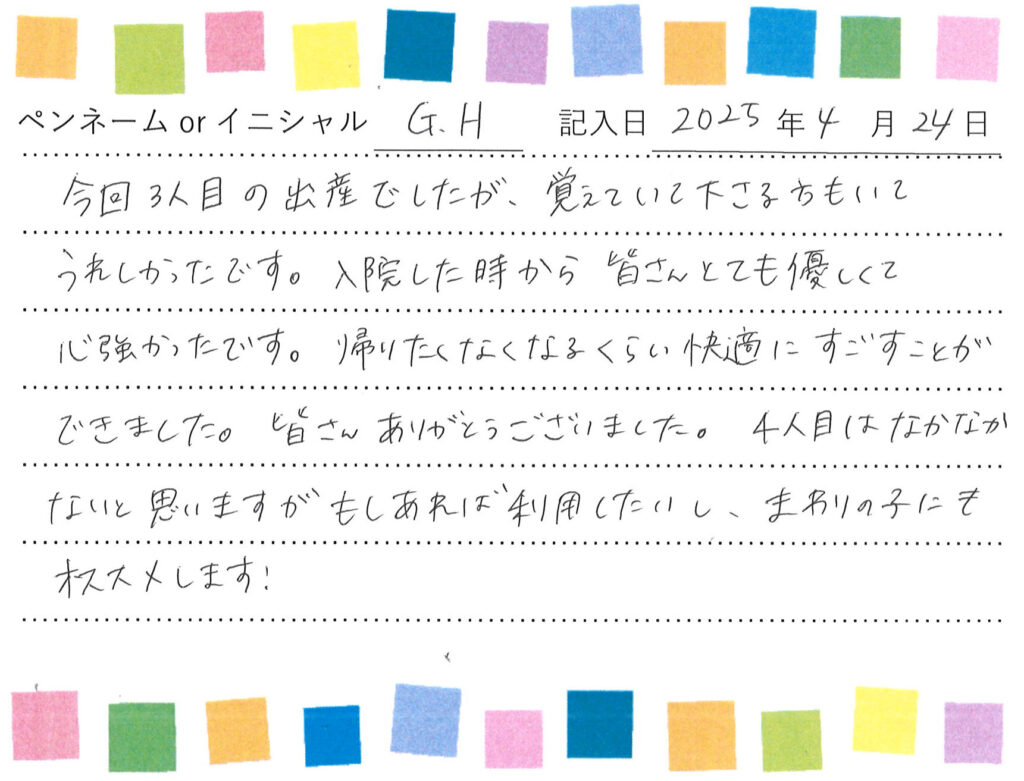 ペンネーム or イニシャル G.H 記入日 2025 年 4 月 24 日
今回3人目の出産でしたが、覚えていて下さる方もいて
うれしかったです。入院した時から皆さんとても優しくて
心強かったです。帰りたくなくなるくらい快適にすごすことが
できました。皆さんありがとうございました。4人目はなかなか
ないと思いますがもしあれば利用したいし、まわりの子にも
オススメします!